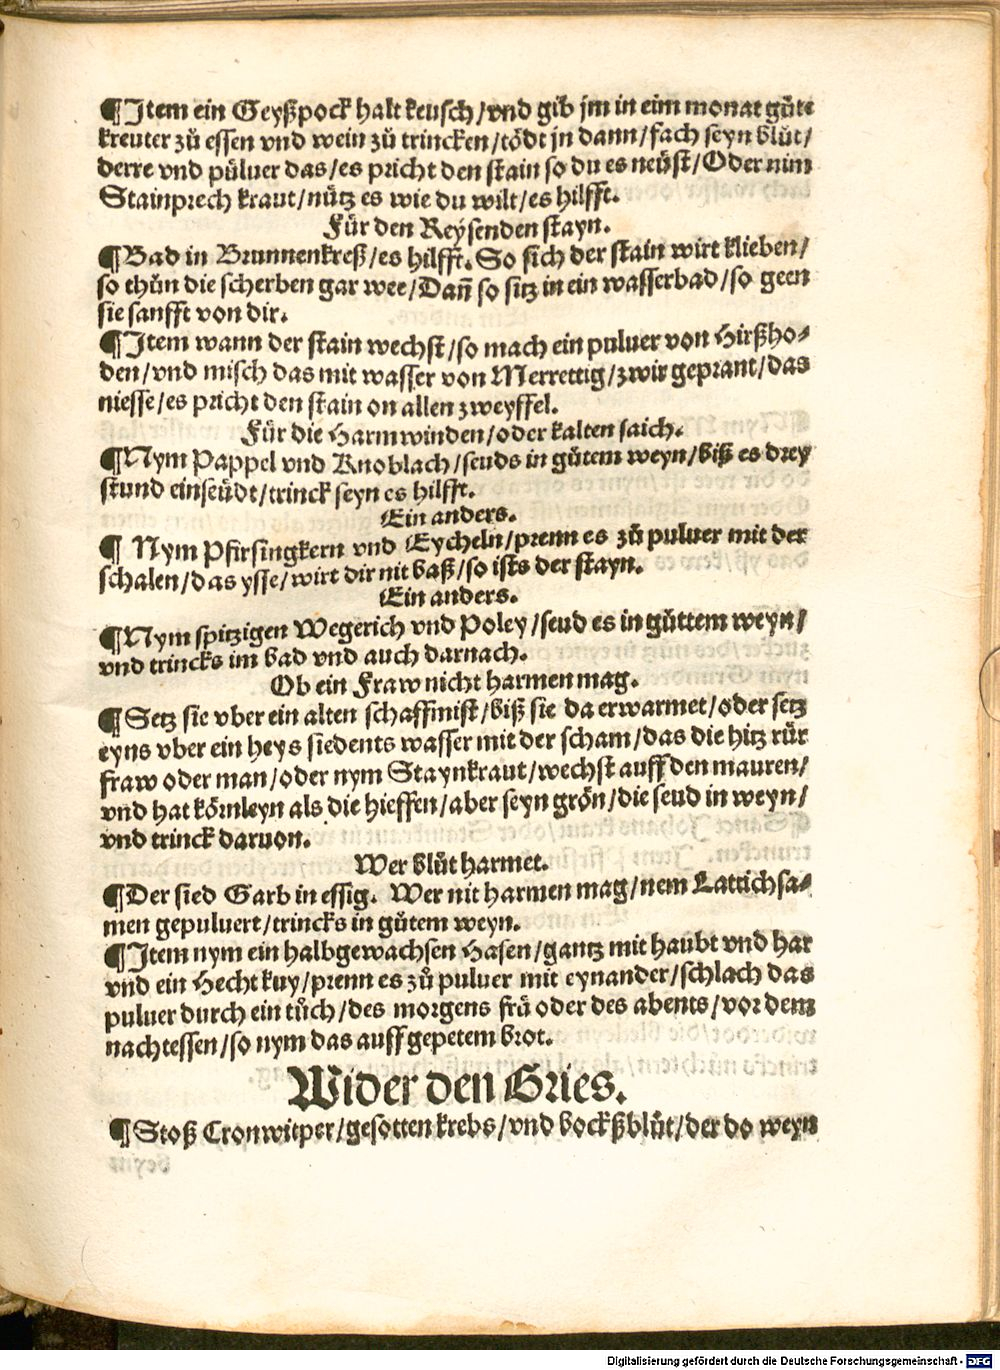 ¶Item ein Geyßpock halt keusch/vnd gib jm in eim monat gůte
kreuter zů essen vnd wein zů trincken/tödt jn dann/fach seyn blůt/
derre vnd půluer das/es pricht den stain so du es neüst/Oder nim
Stainprech kraut/nütz es wie du wilt/es hilfft.
Für den Reysenden stayn.
¶Bad in Brunnenkreß/es hilfft. So sich der stain wirt klieben/
so thůn die scherben gar wee/Dañ so sitz in ein wasserbad/so geen
sie sanfft von dir.
¶Item wann der stain wechst/so mach ein puluer von Hirßho-
den/vnd misch das mit wasser von Merrettig/zwir geprant/das
niesse/es pricht den stain on allen zweyffel.
Für die Harmwinden/oder kalten saich.
¶Nym Pappel vnd Knoblach/seuds in gůtem weyn/biß es drey
stund einseüdt/trinck seyn es hilfft.
Ein anders.
¶ Nym Pfirsingkern vnd Eycheln/prenn es zů puluer mit der
schalen/das ysse/wirt dir nit baß/so ists der stayn.
Ein anders.
¶Nym spitzigen Wegerich vnd Poley/seud es in gůttem weyn/
vnd trincks im bad vnd auch darnach.
Ob ein Fraw nicht harmen mag.
¶Setz sie vber ein alten schaffmist/biß sie da erwarmet/oder setz
eyns vber ein heys siedents wasser mit der scham/das die hitz rür
fraw oder man/oder nym Staynkraut/wechst auff den mauren/
vnd hat körnleyn als die hieffen/aber seyn grön/die seud in weyn/
vnd trinck daruon.
Wer blůt harmet.
¶Der sied Garb in essig. Wer nit harmen mag/nem Lattichsa-
men gepuluert/trincks in gůtem weyn.
¶Item nym ein halbgewachsen Hasen/gantz mit haubt vnd har
vnd ein Hecht kuy/prenn es zů puluer mit eynander/schlach das
puluer durch ein tůch/des morgens frü oder des abents/vor dem
nachtessen/so nym das auff gepetem brot.
Wider den Gries.
¶Stoß Cronwitper/gesotten krebs/vnd bockßblůt/der do weyn
Digitalisierung gefördert durch die Deutsche Forschungsgemeinschaft - DFG